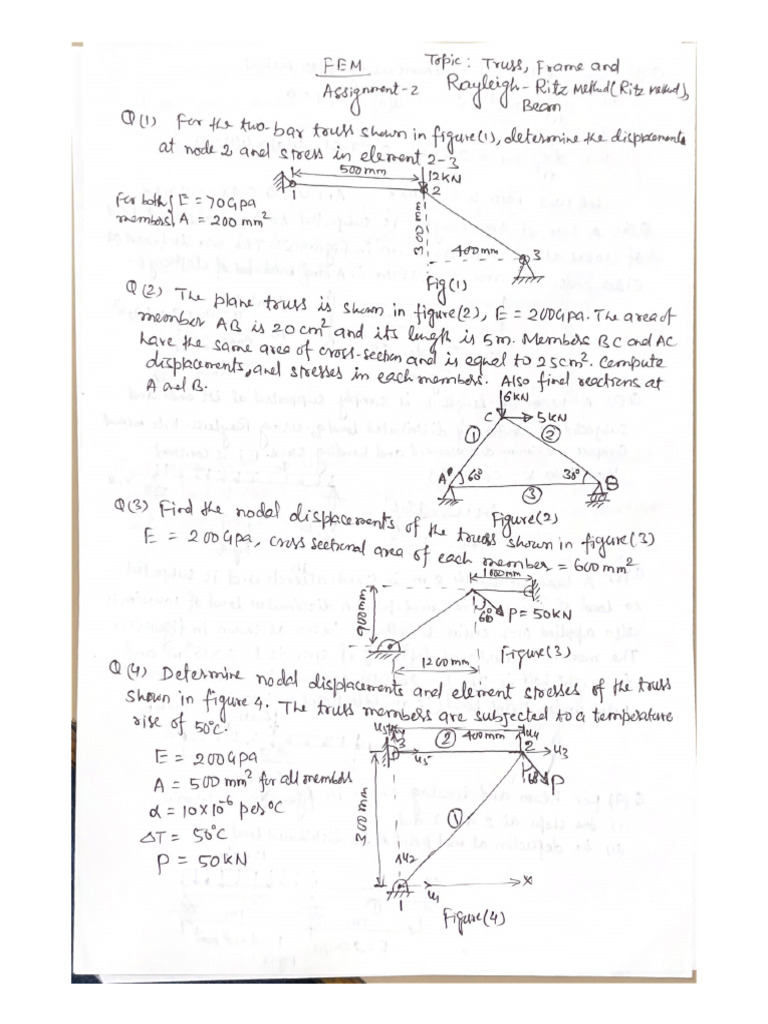 FEM
Topic: Truss, Frame and
Assignment-2
Rayleigh-Ritz Method (Ritz Method),
Beam
Q(1) For the two-bar truss shown in figure(1), determine the displacements
at node 2 and stress in element 2-3
500mm
12KN
1
2
For both
members
E = 70Gpa
A = 200 mm²
300mm
400mm
3
Fig(1)
Q(2) The plane truss is shown in figure(2), E = 200Gpa. The area of
member AB is 20cm² and its length is 5m. Members BC and AC
have the same area of cross-section and is equal to 25cm². Compute
displacements, and stresses in each members. Also find reactions at
A and B.
6KN
C
5KN
1
2
A
60°
30°
B
3
Figure(2)
Q(3) Find the nodal displacements of the truss shown in figure(3)
E = 200Gpa, cross sectional area of each member = 600mm²
1000mm
900mm
60°
P = 50KN
1200mm
Figure(3)
Q(4) Determine nodal displacements and element stresses of the truss
shown in figure 4. The truss members are subjected to a temperature
rise of 50°C.
3
2
400mm
u4
2
u3
u5
P
E = 200Gpa
A = 500 mm² for all members
α = 10×10⁻⁶ per °C
ΔT = 50°C
P = 50KN
300mm
1
u2
1
u1
X
Figure(4)